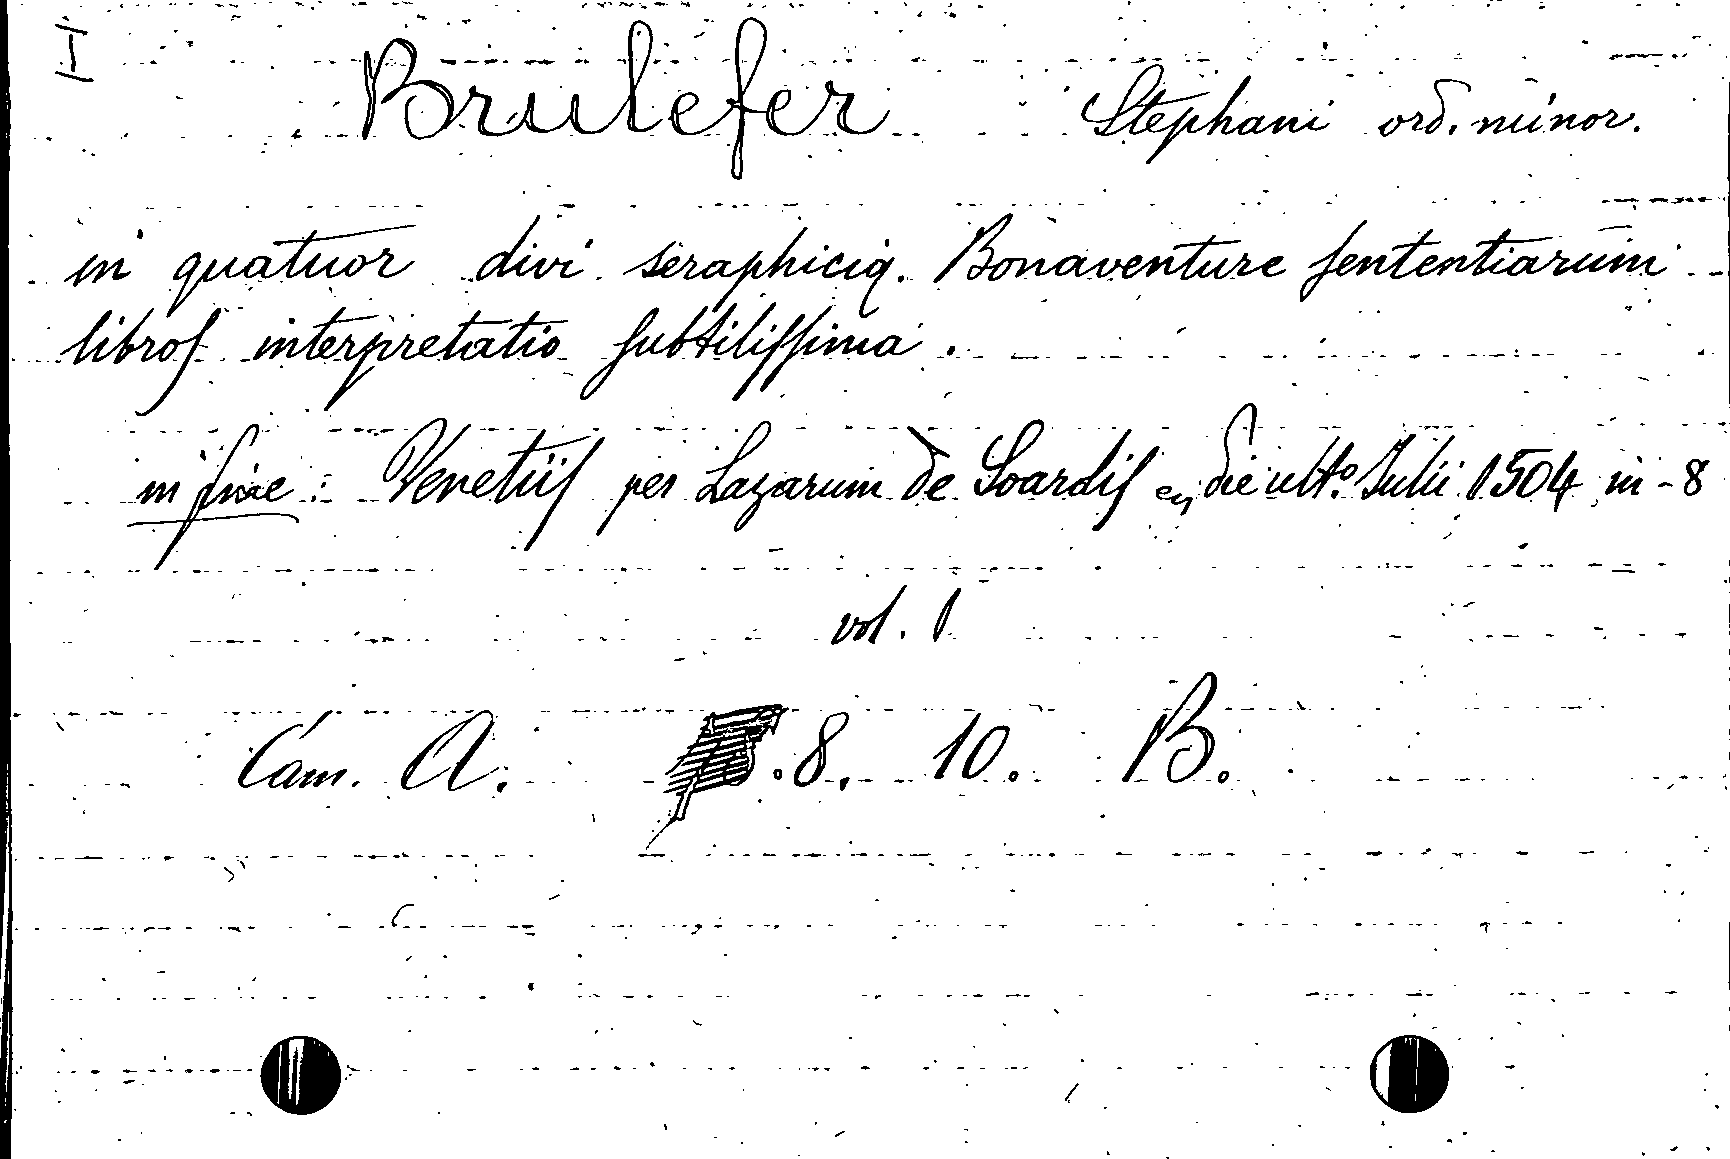 I
Brulefer Stephani ord. minor.
in quatuor divi seraphiciq. Bonaventure ſententiarum
libroſ interpretatio ſubtiliſſima.
in fine: Venetiiſ per Lazarum de Soardiſ die ult.º Julii 1504 in-8
vol. 1
Cam. A. .8. 10. B.